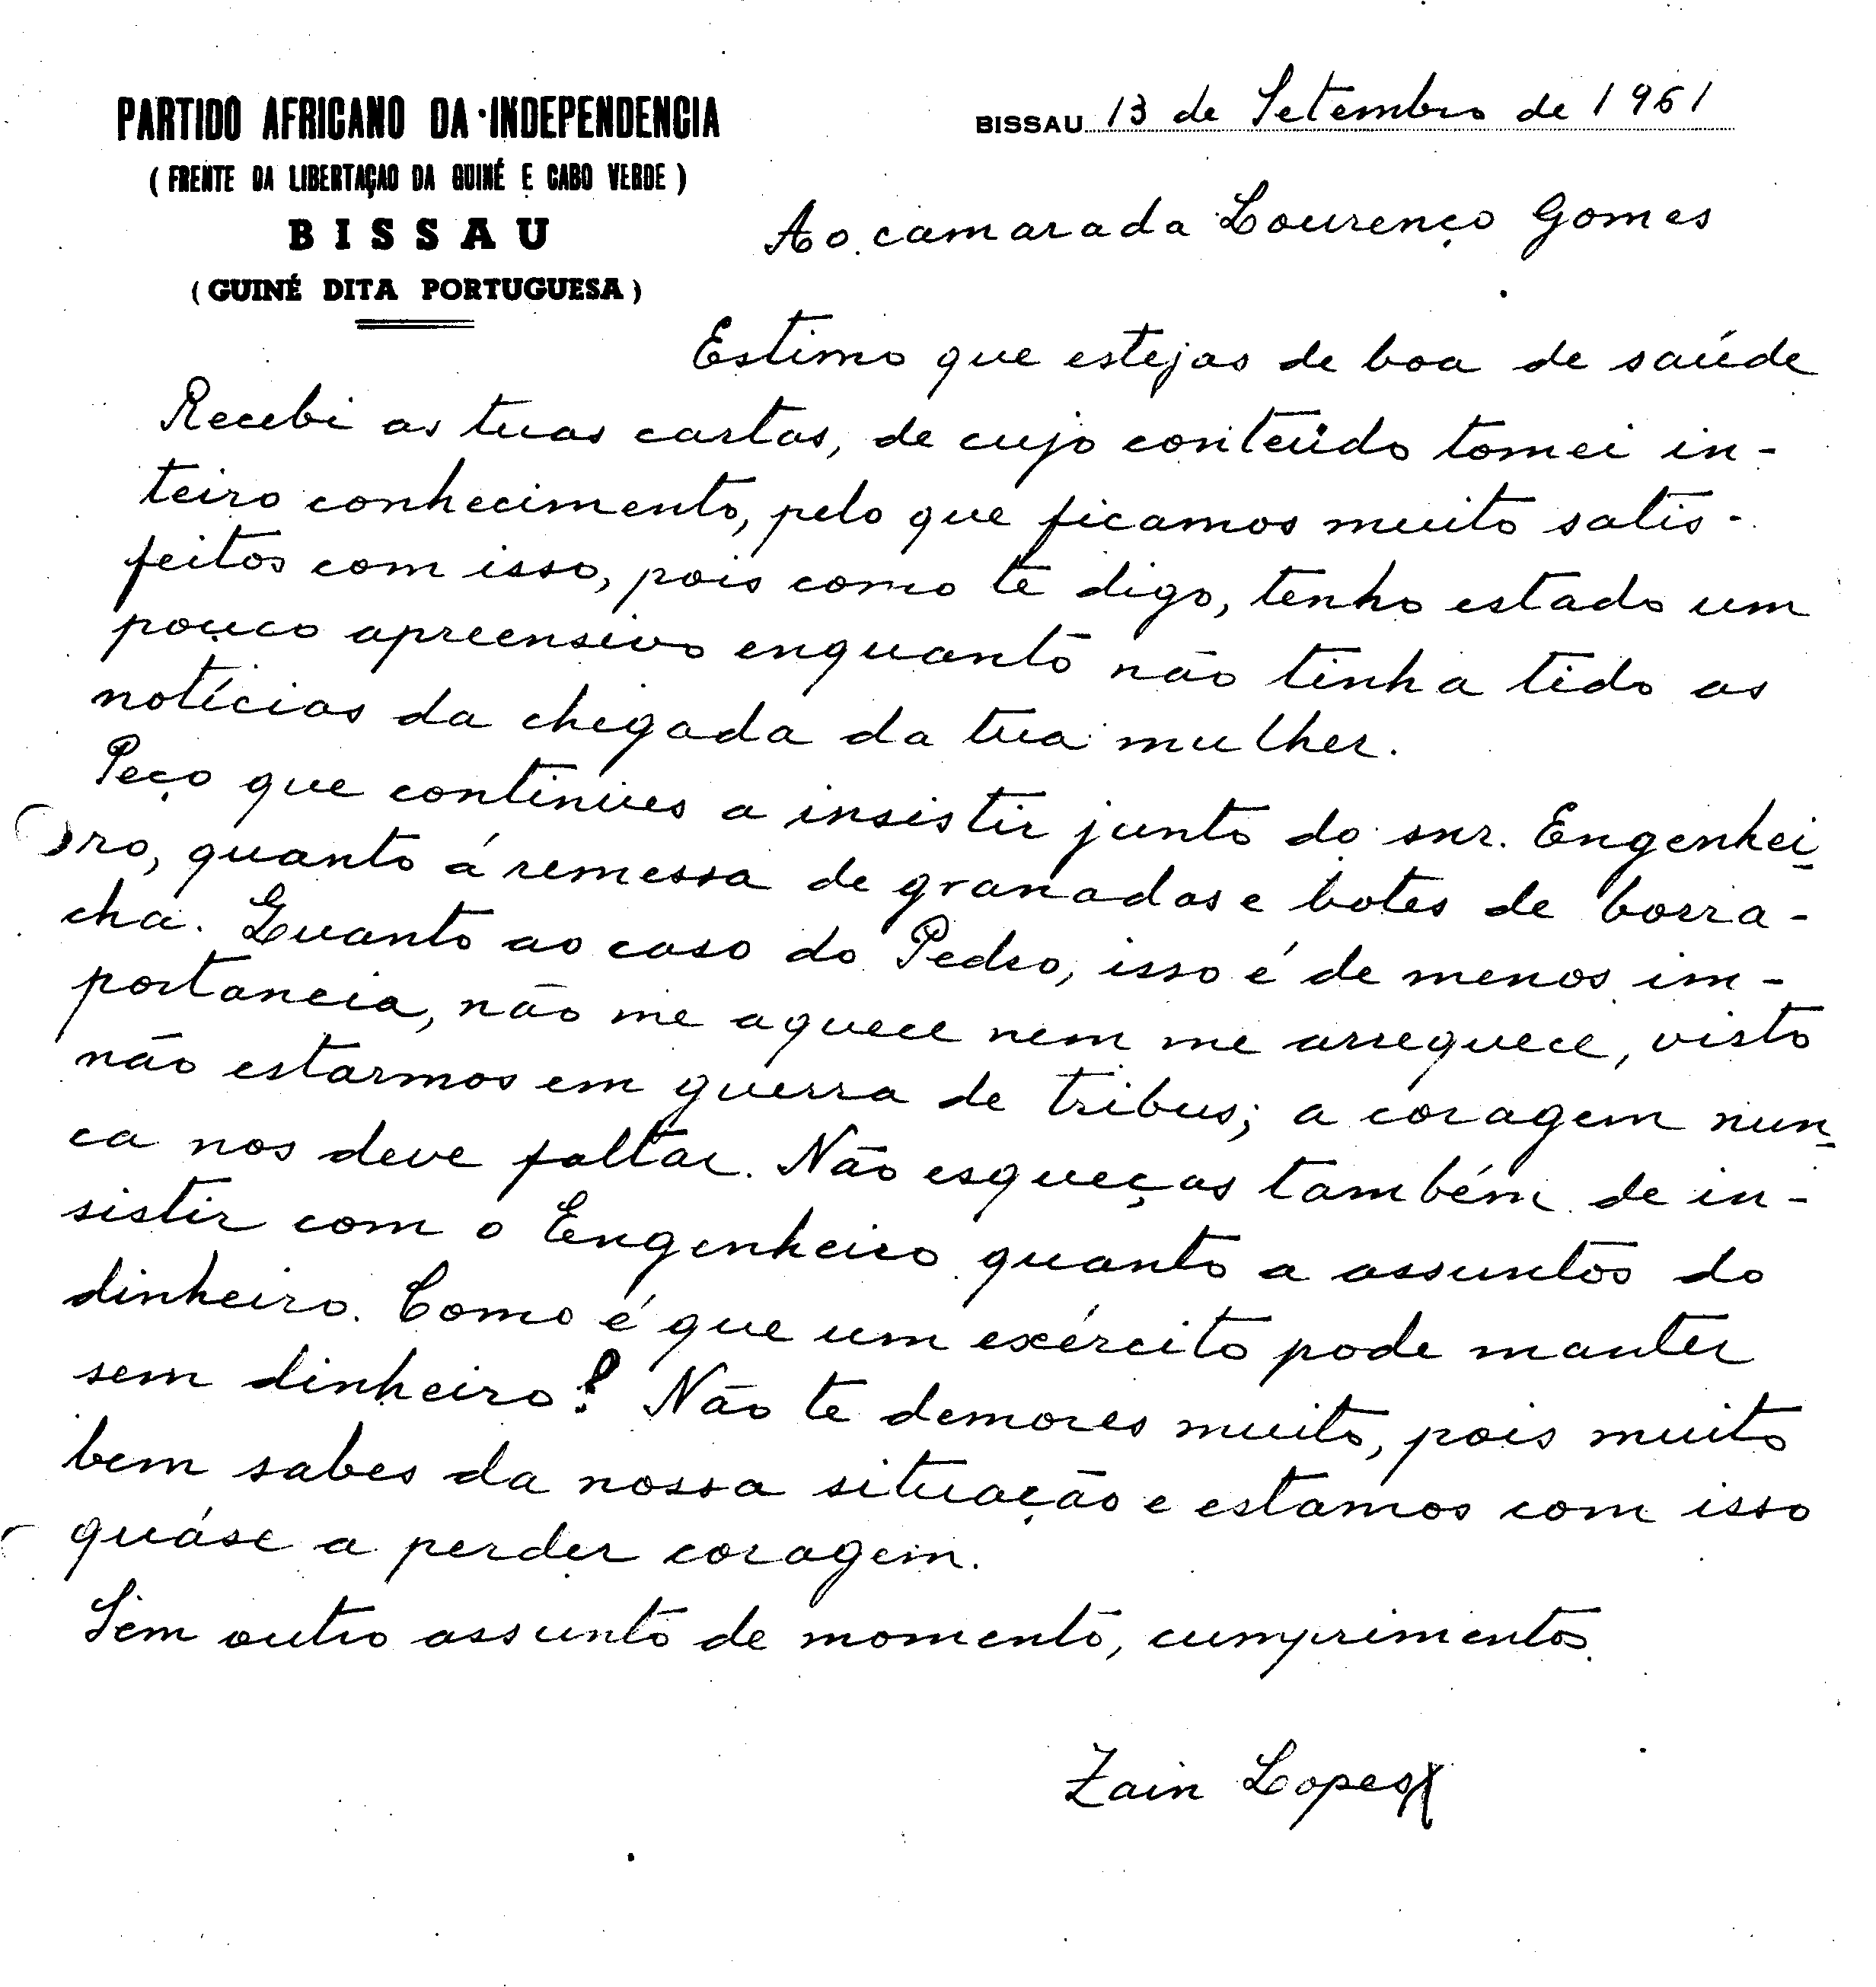 PARTIDO AFRICANO DA INDEPENDENCIA
(FRENTE DA LIBERTAÇAO DA GUINÉ E CABO VERDE)
BISSAU
(GUINÉ DITA PORTUGUESA)
BISSAU 13 de Setembro de 1961
Ao camarada Lourenço Gomes
Estimo que estejas de boa de saúde
Recebi as tuas cartas, de cujo conteúdo tomei in-
teiro conhecimento, pelo que ficamos muito satis-
feitos com isso, pois como te digo, tenho estado um
pouco apreensivo enquanto não tinha tido as
notícias da chegada da tua mulher.
Peço que continues a insistir junto do snr. Engenhei-
ro, quanto á remessa de granadas e botes de borra-
cha. Quanto ao caso do Pedro, isso é de menos im-
portancia, não me aquece nem me arrequece, visto
não estarmos em guerra de tribus; a coragem nun-
ca nos deve faltar. Não esqueças também de in-
sistir com o Engenheiro quanto a assuntos do
dinheiro. Como é que um exército pode manter
sem dinheiro? Não te demores muito, pois muito
bem sabes da nossa situação e estamos com isso
quáse a perder coragem.
Sem outro assunto de momento, cumprimentos.
Zain Lopes